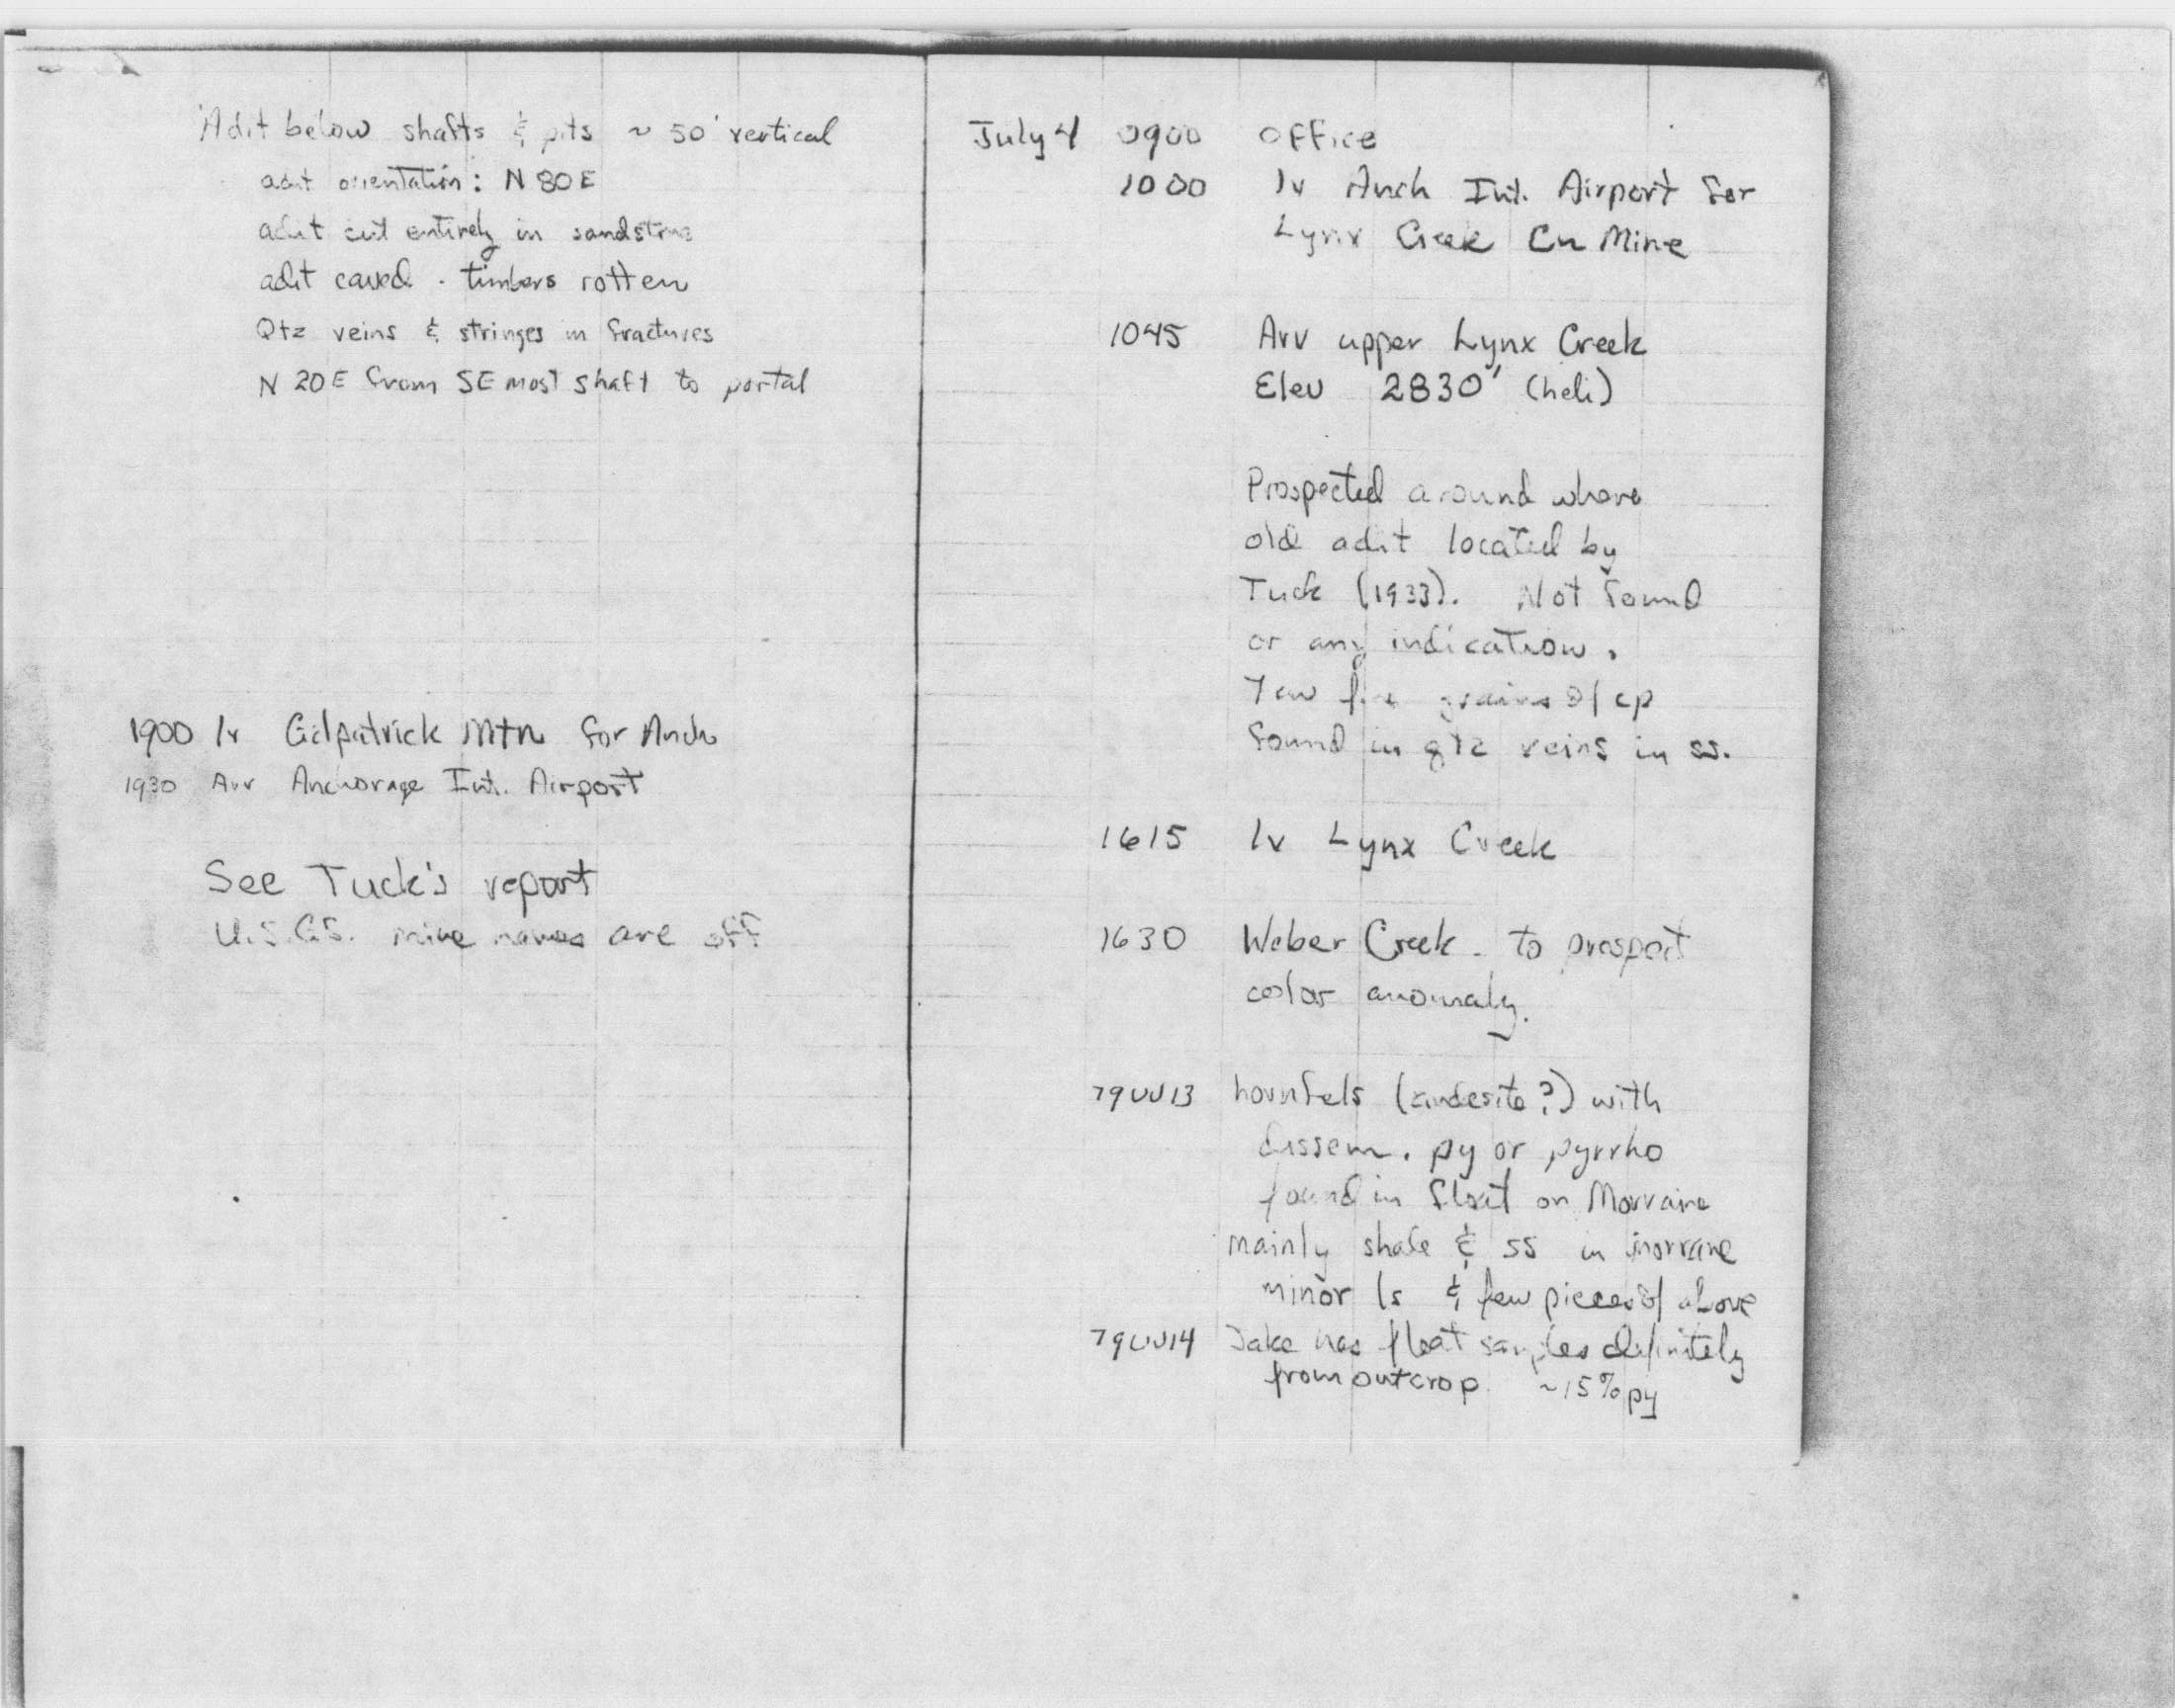 Adit below shafts & pits ~ 50' vertical
adit orientation: N 80 E
adit cut entirely in sandstone
adit caved. timbers rotten
Qtz veins & stringes in fractures
N 20 E from SE most shaft to portal
1900 lv Gilpatrick Mtn for Anch
1930 Arv Anchorage Int. Airport
See Tuck's report
U.S.G.S. mine names are off
July 4 0900 Office
1000 lv Anch Int. Airport for
Lynx Creek Cu Mine
1045 Arv upper Lynx Creek
Elev 2830' (heli)
Prospected around where
old adit located by
Tuck (1933). Not found
or any indication.
Few fine grains of cp
found in qtz veins in ss.
1615 lv Lynx Creek
1630 Weber Creek - to prospect
color anomaly.
hornfels (andesite?) with
dissem. py or pyrrho
found in float on Morraine
mainly shale & ss in morraine
minor ls & few pieces of above
Jake has float samples definitely
from outcrop. ~15% py